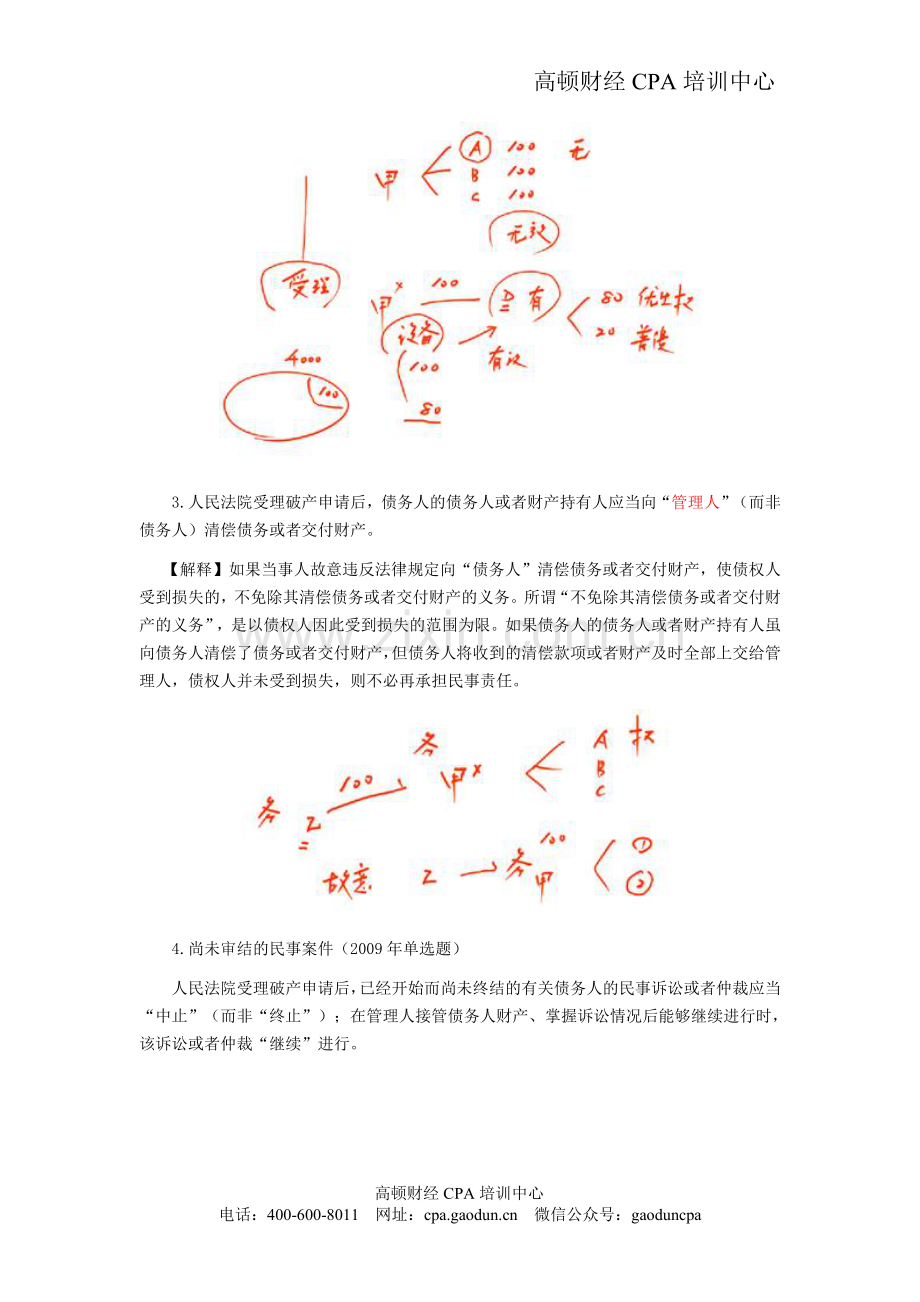 高顿财经 CPA 培训中心
甲 A 100 无
B 100
C 100
无效
受理
甲× 100 D 有 80 优先权
20 普债
设备
有效
100
80
4000
100
3.人民法院受理破产申请后，债务人的债务人或者财产持有人应当向“管理人”（而非
债务人）清偿债务或者交付财产。
【解释】如果当事人故意违反法律规定向“债务人”清偿债务或者交付财产，使债权人
受到损失的，不免除其清偿债务或者交付财产的义务。所谓“不免除其清偿债务或者交付财
产的义务”，是以债权人因此受到损失的范围为限。如果债务人的债务人或者财产持有人虽
向债务人清偿了债务或者交付财产，但债务人将收到的清偿款项或者财产及时全部上交给管
理人，债权人并未受到损失，则不必再承担民事责任。
务 乙 100 务 甲× A 权
B
C
故意 乙 务 甲 100 ①
②
4.尚未审结的民事案件（2009 年单选题）
人民法院受理破产申请后，已经开始而尚未终结的有关债务人的民事诉讼或者仲裁应当
“中止”（而非“终止”）；在管理人接管债务人财产、掌握诉讼情况后能够继续进行时，
该诉讼或者仲裁“继续”进行。
高顿财经 CPA 培训中心
电话：400-600-8011 网址：cpa.gaodun.cn 微信公众号：gaoduncpa